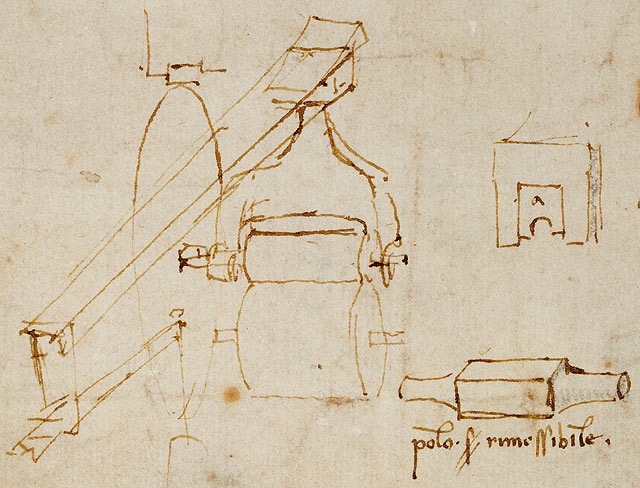 a
polo. rimossibile.